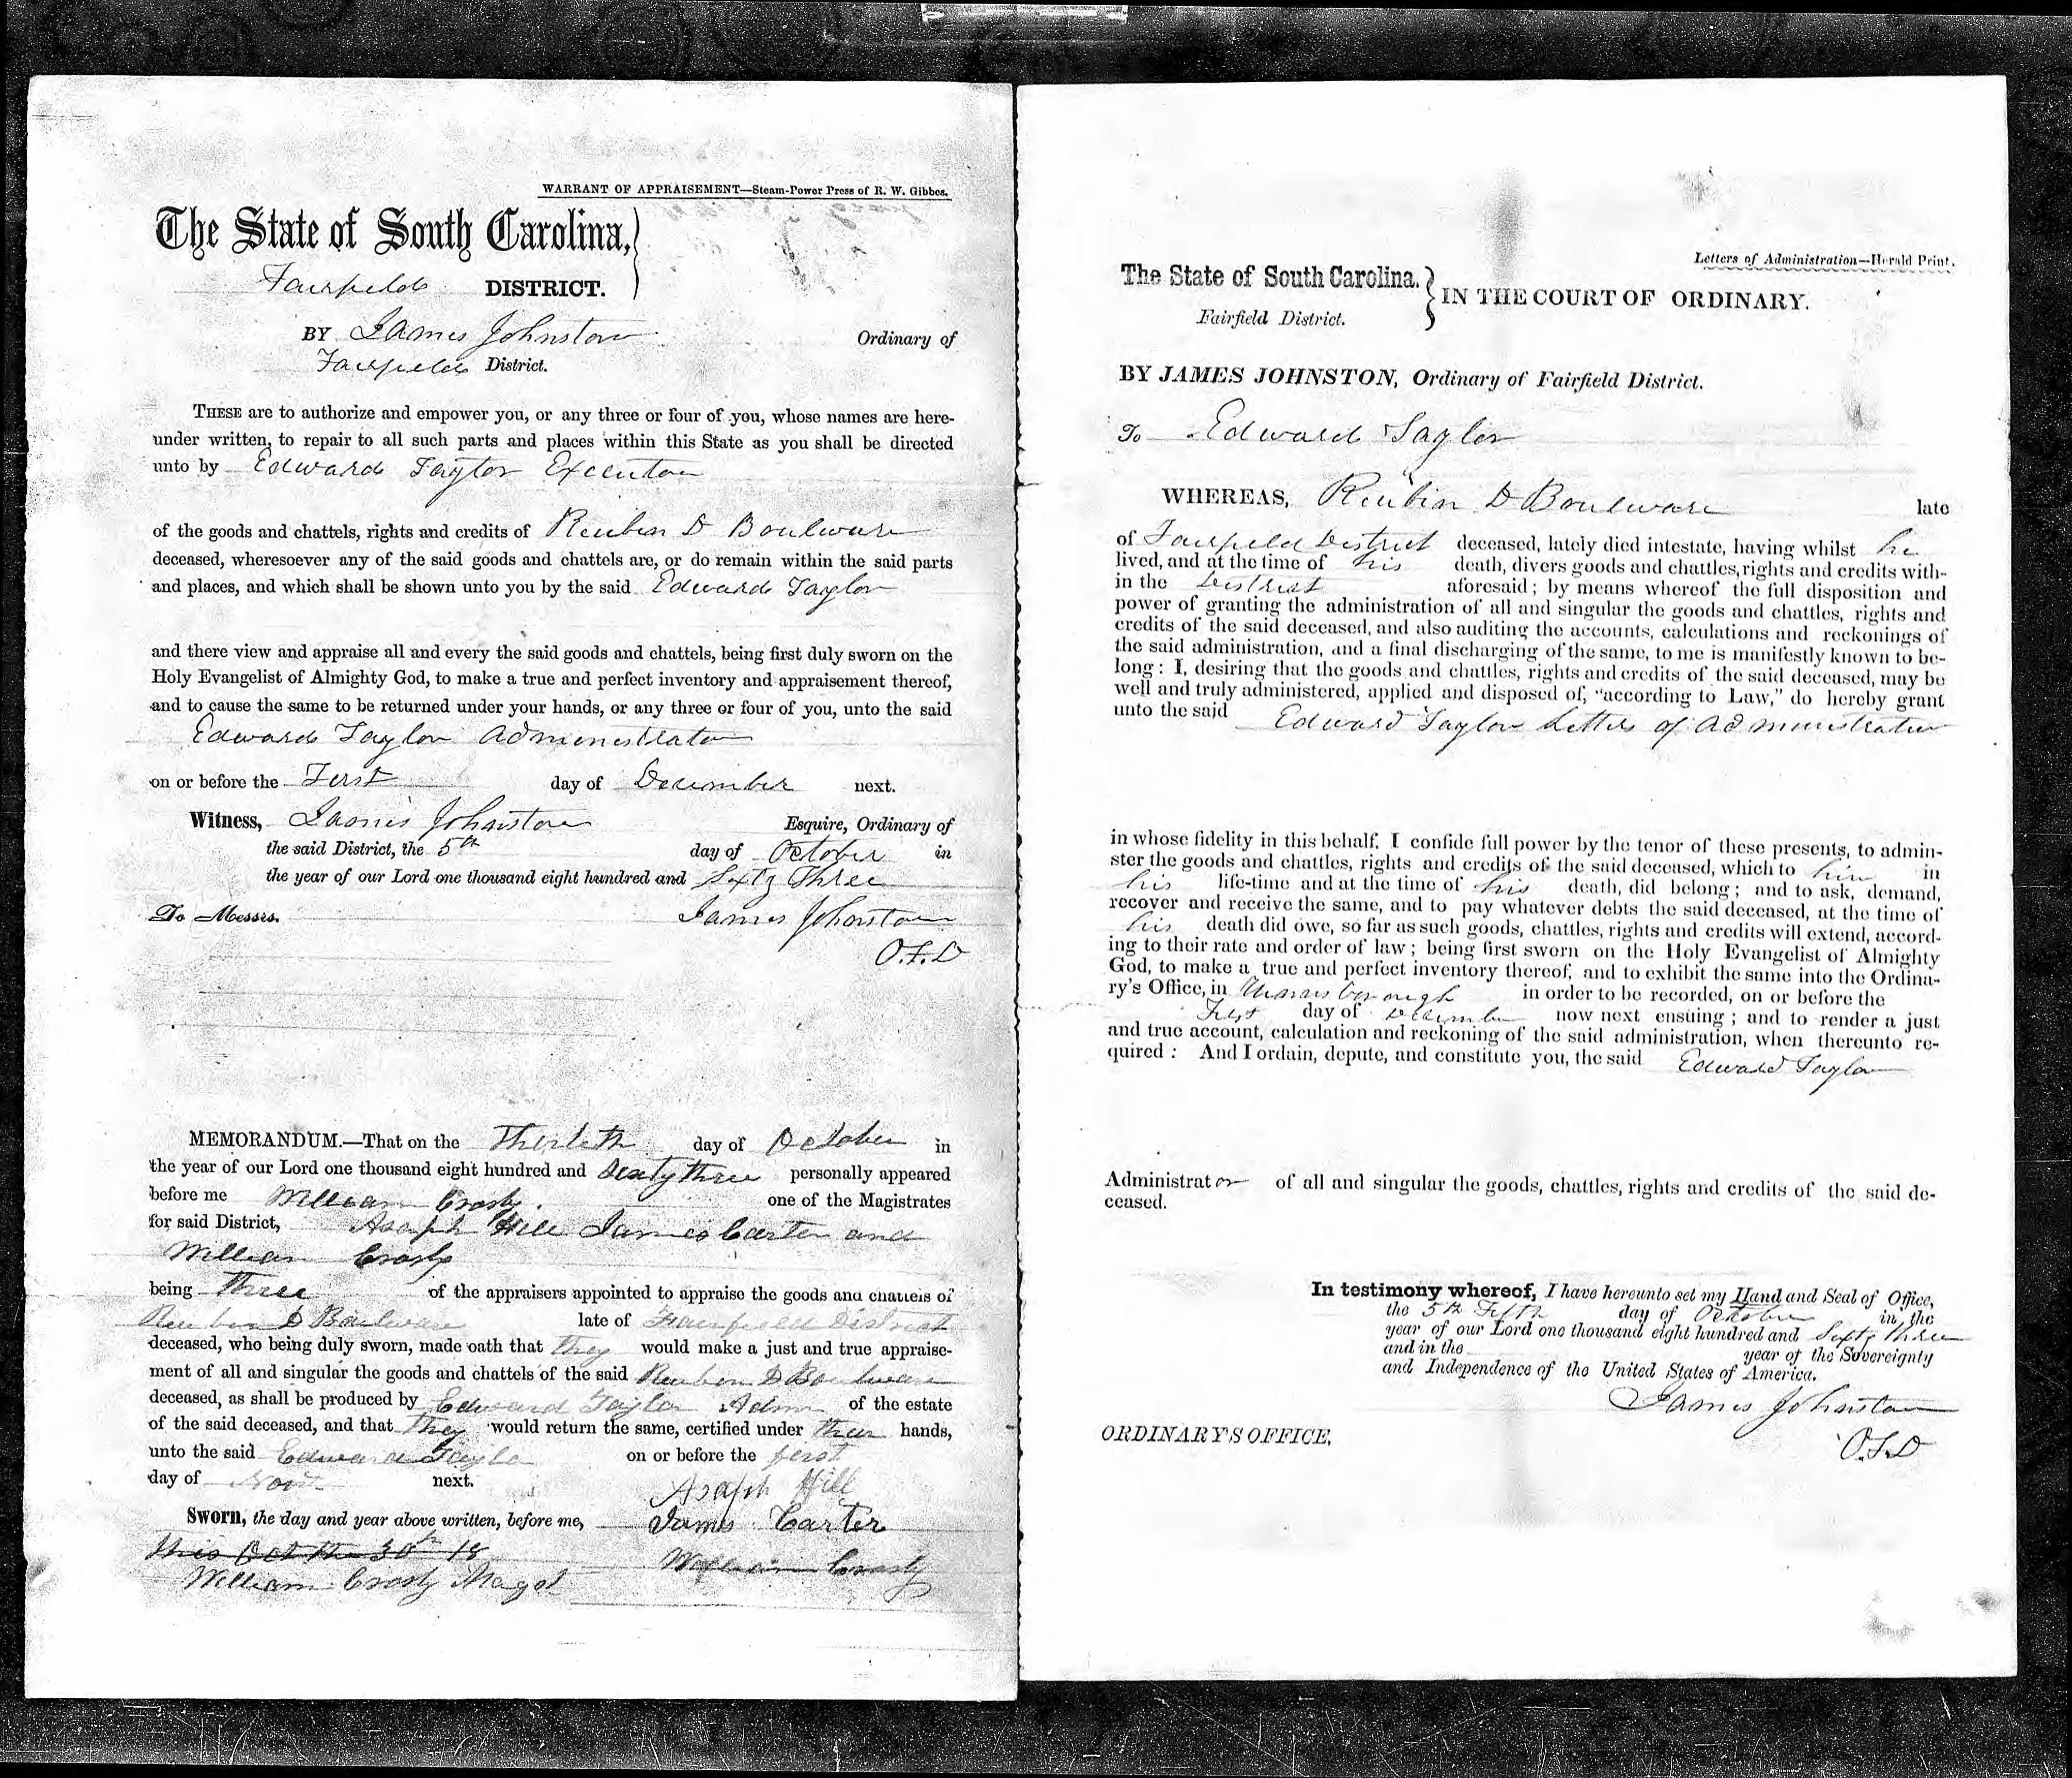 WARRANT OF APPRAISEMENT—Steam-Power Press of R. W. Gibbes.
The State of South Carolina,
Fairfield DISTRICT.
BY James Johnston Ordinary of
Fairfield District.
THESE are to authorize and empower you, or any three or four of you, whose names are here-
under written, to repair to all such parts and places within this State as you shall be directed
unto by Edward Taylor Executor
of the goods and chattels, rights and credits of Reuben D Boulware
deceased, wheresoever any of the said goods and chattels are, or do remain within the said parts
and places, and which shall be shown unto you by the said Edward Taylor
and there view and appraise all and every the said goods and chattels, being first duly sworn on the
Holy Evangelist of Almighty God, to make a true and perfect inventory and appraisement thereof,
and to cause the same to be returned under your hands, or any three or four of you, unto the said
Edward Taylor Administrator
on or before the First day of December next.
Witness, James Johnston Esquire, Ordinary of
the said District, the 5th day of October in
the year of our Lord one thousand eight hundred and Sixty Three
To Messrs. James Johnston
O.F.D
MEMORANDUM.—That on the Thirteth day of October in
the year of our Lord one thousand eight hundred and Sixty three personally appeared
before me William Crosby. one of the Magistrates
for said District, Asaph Hill James Carter and
William Crosby
being three of the appraisers appointed to appraise the goods and chattels of
Reuben D Boulware late of Fairfield District
deceased, who being duly sworn, made oath that they would make a just and true appraise-
ment of all and singular the goods and chattels of the said Reuben D Boulware
deceased, as shall be produced by Edward Taylor Admr of the estate
of the said deceased, and that they would return the same, certified under their hands,
unto the said Edward Taylor on or before the first
day of Novr next.
Asaph Hill
Sworn, the day and year above written, before me, James Carter
this Oct the 30th 18 William Crosby
William Crosby Magst
Letters of Administration—Herald Print.
The State of South Carolina. IN THE COURT OF ORDINARY.
Fairfield District.
BY JAMES JOHNSTON, Ordinary of Fairfield District.
To Edward Taylor
WHEREAS, Reubin D Boulware late
of Fairfield District deceased, lately died intestate, having whilst he
lived, and at the time of his death, divers goods and chattles, rights and credits with-
in the District aforesaid; by means whereof the full disposition and
power of granting the administration of all and singular the goods and chattles, rights and
credits of the said deceased, and also auditing the accounts, calculations and reckonings of
the said administration, and a final discharging of the same, to me is manifestly known to be-
long: I, desiring that the goods and chattles, rights and credits of the said deceased, may be
well and truly administered, applied and disposed of, "according to Law," do hereby grant
unto the said Edward Taylor Letters of Administration
in whose fidelity in this behalf, I confide full power by the tenor of these presents, to admin-
ster the goods and chattles, rights and credits of the said deceased, which to him in
his life-time and at the time of his death, did belong; and to ask, demand,
recover and receive the same, and to pay whatever debts the said deceased, at the time of
his death did owe, so far as such goods, chattles, rights and credits will extend, accord-
ing to their rate and order of law; being first sworn on the Holy Evangelist of Almighty
God, to make a true and perfect inventory thereof, and to exhibit the same into the Ordina-
ry's Office, in Winnsborough in order to be recorded, on or before the
First day of December now next ensuing; and to render a just
and true account, calculation and reckoning of the said administration, when thereunto re-
quired: And I ordain, depute, and constitute you, the said Edward Taylor
Administrator of all and singular the goods, chattles, rights and credits of the said de-
ceased.
In testimony whereof, I have hereunto set my Hand and Seal of Office,
the 5th Fifth day of October in the
year of our Lord one thousand eight hundred and Sixty three
and in the year of the Sovereignty
and Independence of the United States of America.
James Johnston
ORDINARY'S OFFICE, O.F.D